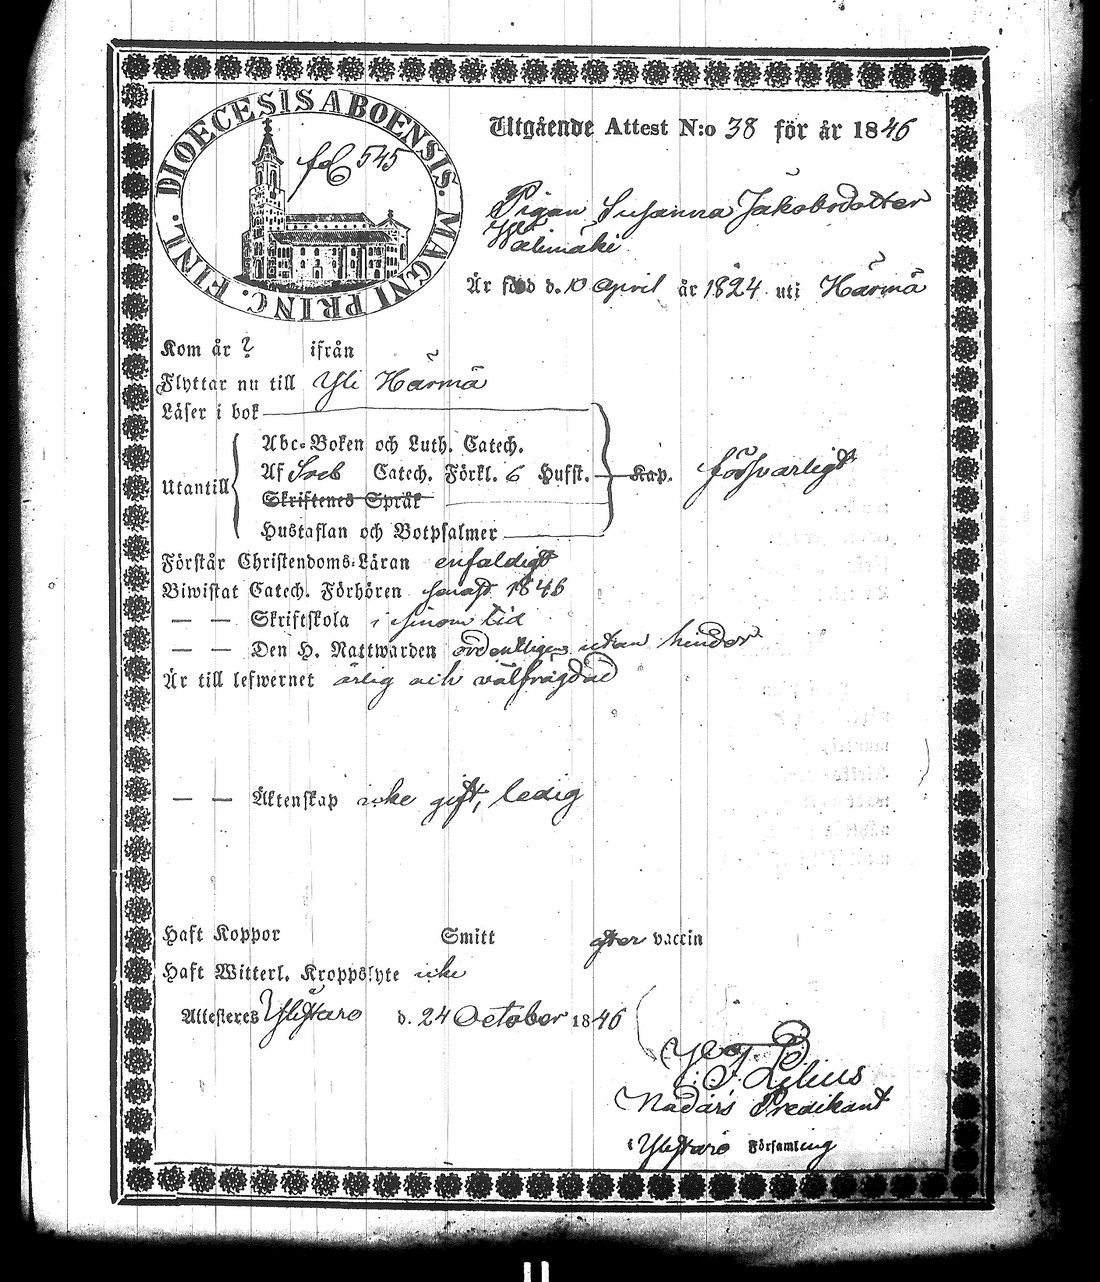 DIOECESIS ABOENSIS. MAGNI PRINC. FINL.
fol 545
Utgående Attest N:o 38 för år 1846
Pigan Susanna Jakobsdotter
Välimäki
Är född d. 10 April år 1824 uti Härmä
Kom år ? ifrån
Flyttar nu till Yli Härmä
Läser i bok
Abc-Boken och Luth. Catech.
Utantill
Af Sveb Catech. Förkl. 6 Hufst. Kap. försvarligt
Skriftenes Språk
Hustaflan och Botpsalmer
Förstår Christendoms-Läran enfaldigt
Biwistat Catech. Förhören senast 1846
— — Skriftskola i sinom tid
— — Den H. Nattwarden ordentligen utan hinder
Är till lefwernet ärlig och välfrägdad
— — Äktenskap icke gift, ledig
Haft Koppor Smitt efter vaccin
Haft Witterl. Kroppslyte icke
Attesteres Ylistaro d. 24 October 1846
J. F. Lilius
Nådårs Predikant
i Ylistaro Församling